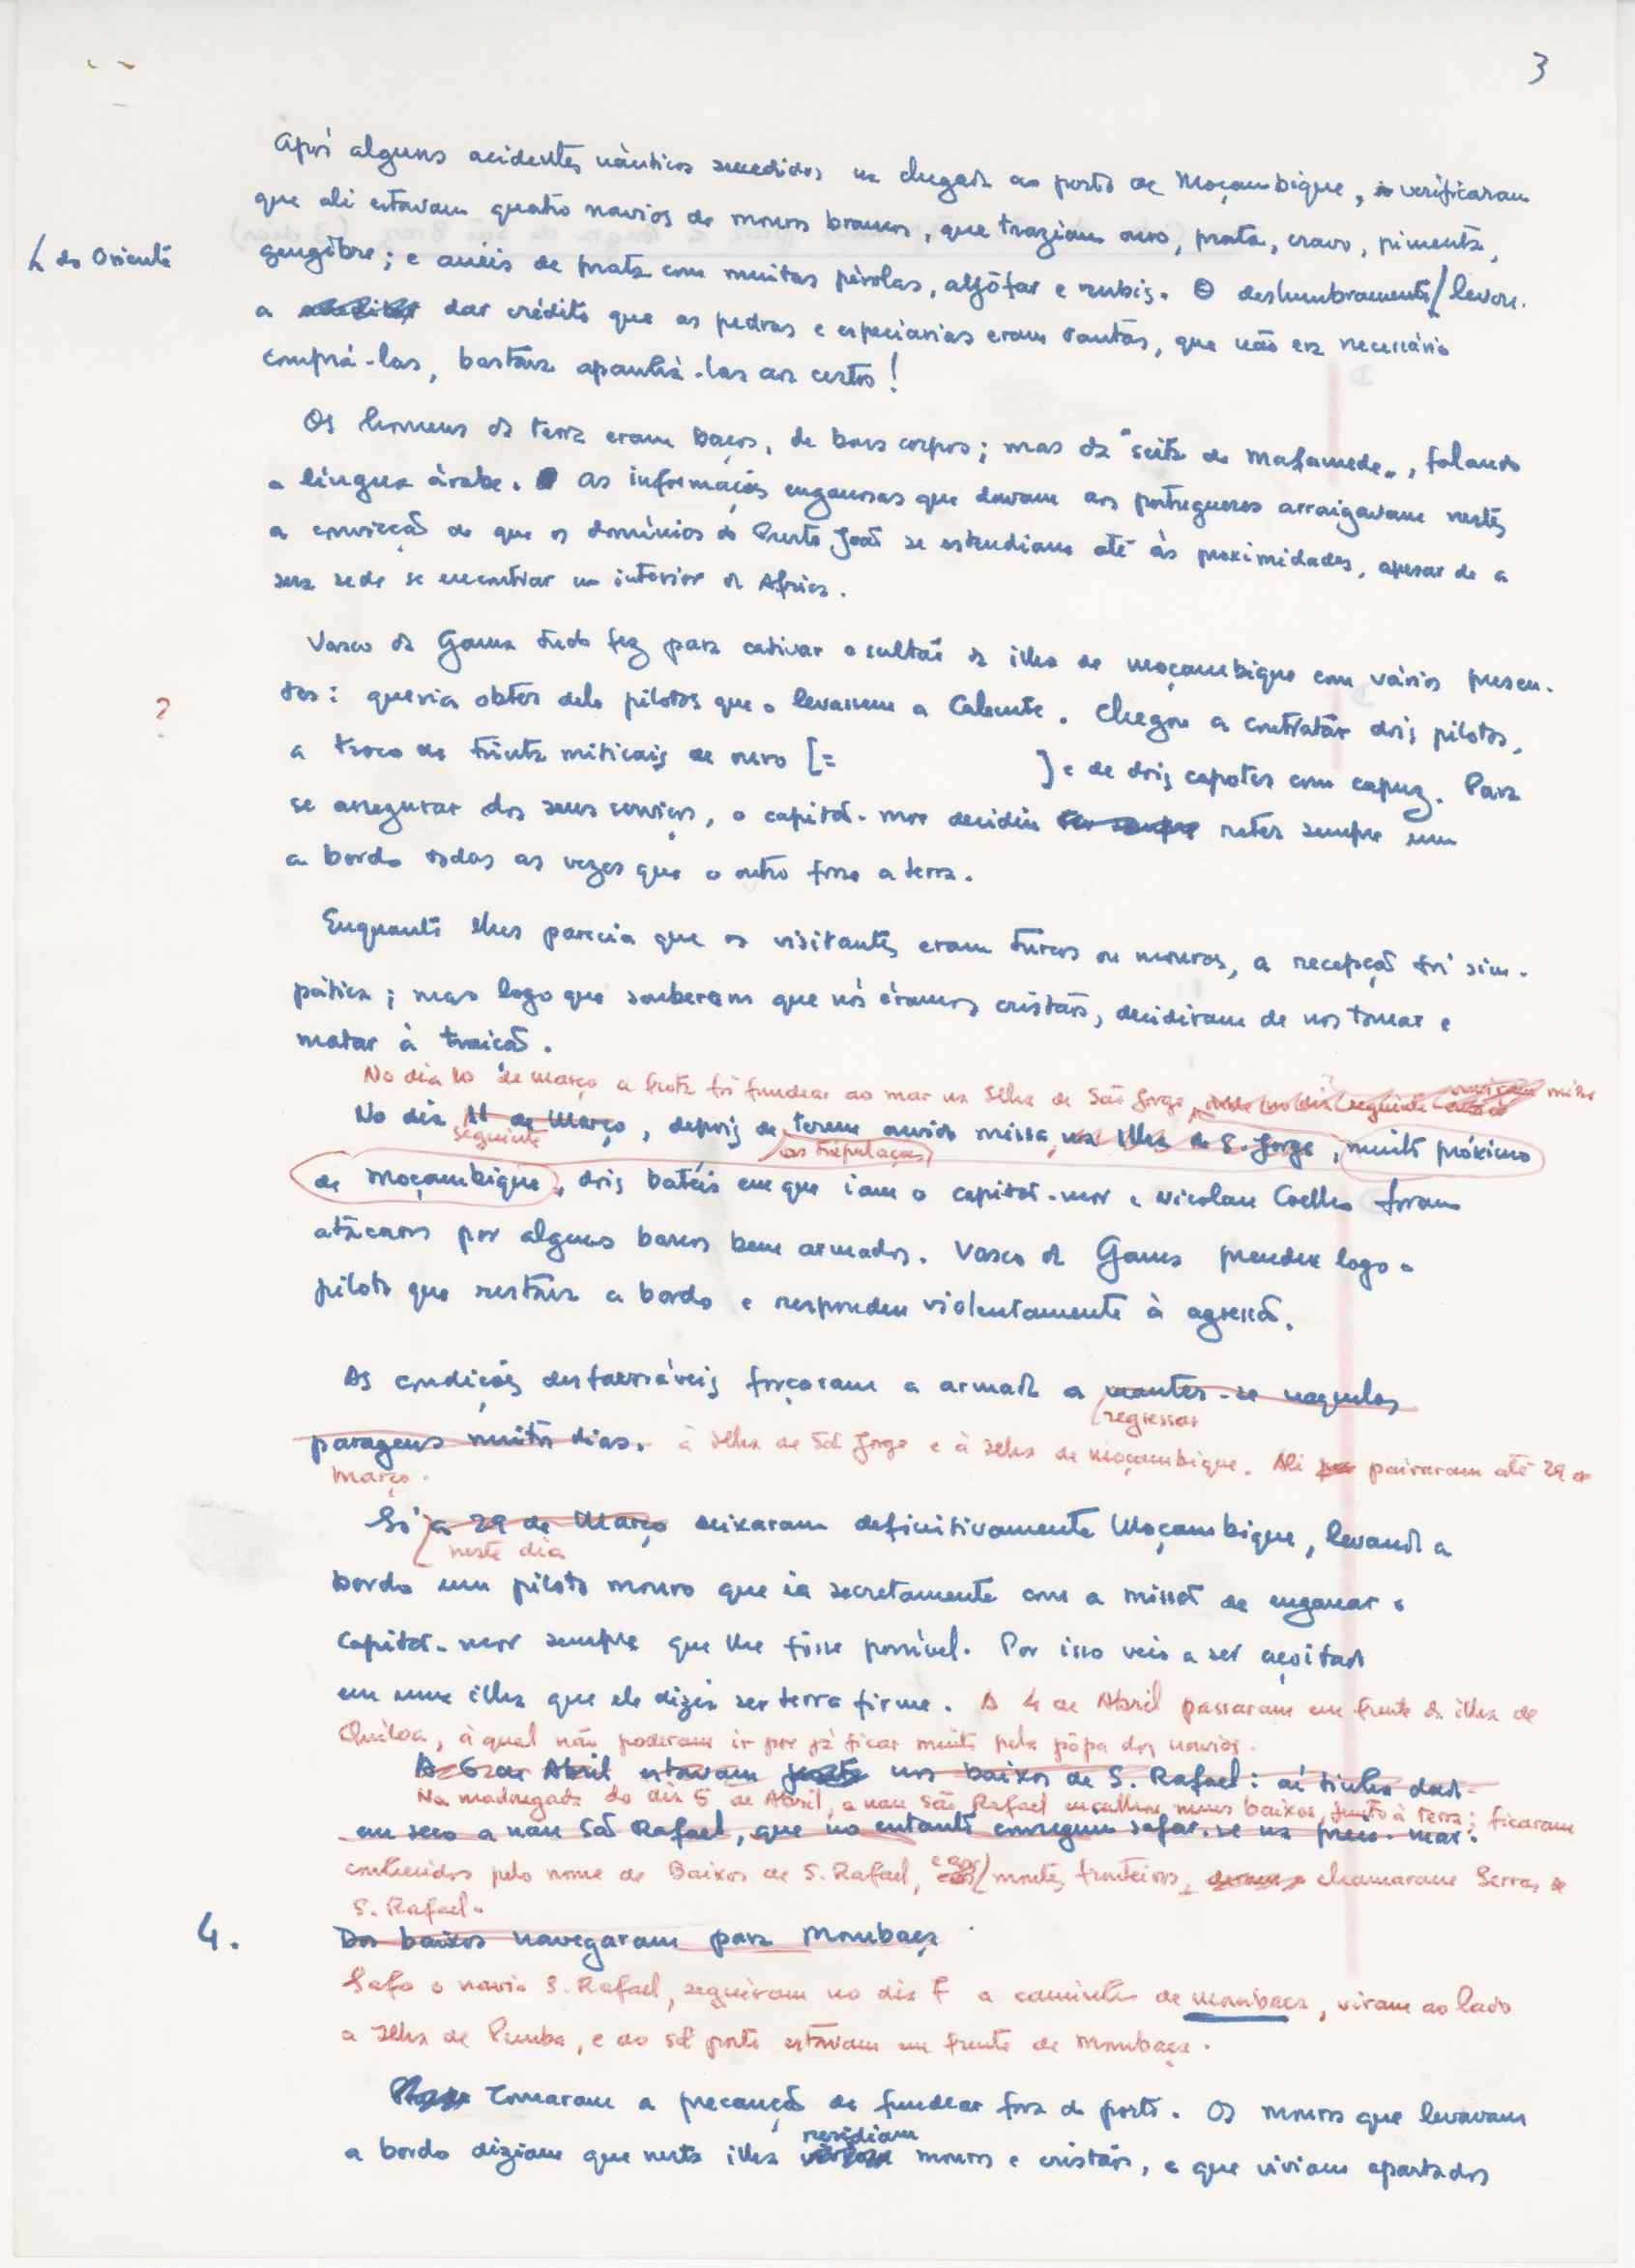 3
Após alguns acidentes náuticos sucedidos na chegada ao porto de Moçambique, verificaram
que ali estavam quatro navios de mouros brancos, que traziam ouro, prata, cravo, pimenta,
gengibre; e anéis de prata com muitas pérolas, aljôfar e rubis. O deslumbramento / levou-
do Oriente
a dar crédito que as pedras e especiarias eram tantas, que não era necessário
comprá-las, bastava apanhá-las aos cestos!
Os homens da terra eram baços, de bons corpos; mas da "seita de Mafamede", falando
a língua árabe. As informações enganosas que davam aos portugueses arraigavam nestes
a convicção de que os domínios do Preste João se estendiam até às proximidades, apesar de a
sua sede se encontrar no interior da Africa.
Vasco da Gama tudo fez para cativar o sultão da ilha de Moçambique com vários presen-
tes: queria obter dele pilotos que o levassem a Calecute. Chegou a contratar dois pilotos,
?
a troco de trinta miticais de ouro [= ] e de dois capotes com capuz. Para
se assegurar dos seus serviços, o capitão-mor decidiu reter sempre um
a bordo todas as vezes que o outro fosse a terra.
Enquanto lhes parecia que os visitantes eram turcos ou mouros, a recepção foi sim-
pática; mas logo que souberam que nós éramos cristãos, decidiram de nos tomar e
matar à traição.
No dia 10 de março a frota foi fundear ao mar na Ilha de São Jorge, onde no dia seguinte ouviram missa
No dia 11 de Março, depois de terem ouvido missa, na Ilha de S. Jorge, muito próximo
seguinte as tripulações
de Moçambique, dois batéis em que iam o capitão-mor e Nicolau Coelho foram
atacados por alguns barcos bem armados. Vasco da Gama prendeu logo o
piloto que restava a bordo e respondeu violentamente à agressão.
As condições desfavoráveis forçaram a armada a manter-se naquelas
regressar
paragens muitos dias. à Ilha de São Jorge e à Ilha de Moçambique. Ali pairaram até 29 de
março.
Só a 29 de Março deixaram definitivamente Moçambique, levando a
neste dia
bordo um piloto mouro que ia secretamente com a missão de enganar o
capitão-mor sempre que lhe fosse possível. Por isso veio a ser açoitado
em uma ilha que ele dizia ser terra firme. A 4 de Abril passaram em frente da ilha de
Quíloa, à qual não poderam ir por já ficar muito pela pôpa dos navios.
A 6 de Abril estavam nos baixos de S. Rafael: aí tinha dado
Na madrugada do dia 6 de Abril, a nau São Rafael encalhou nuns baixos, junto à terra; ficaram
em seco a nau São Rafael, que no entanto conseguiu safar-se na preia-mar.
conhecidos pelo nome de Baixos de S. Rafael, e aos montes fronteiros, chamaram Serras de
S. Rafael.
4. Dos baixos navegaram para Mombaça
Safo o navio S. Rafael, seguiram no dia 7 a caminho de Mombaça, viram ao lado
a Ilha de Pemba, e ao sol posto estavam em frente de Mombaça.
Tomaram a precaução de fundear fora do porto. Os mouros que levavam
residiam
a bordo diziam que nesta ilha mouros e cristãos, e que viviam apartados